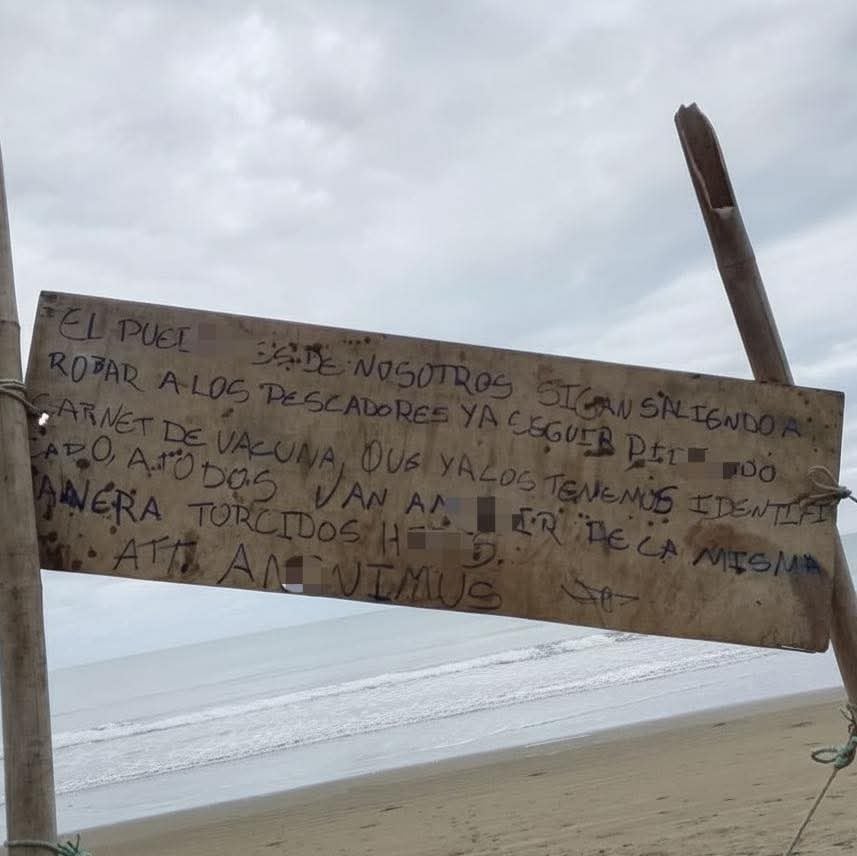 EL ES DE NOSOTROS SIGAN SALIENDO A
ROBAR A LOS PESCADORES YA SEGUIR
CARNET DE VACUNA, QUE YA LOS TENEMOS IDENTIFI
CADO, A TODOS VAN A DE LA MISMA
ANERA TORCIDOS
ATT.